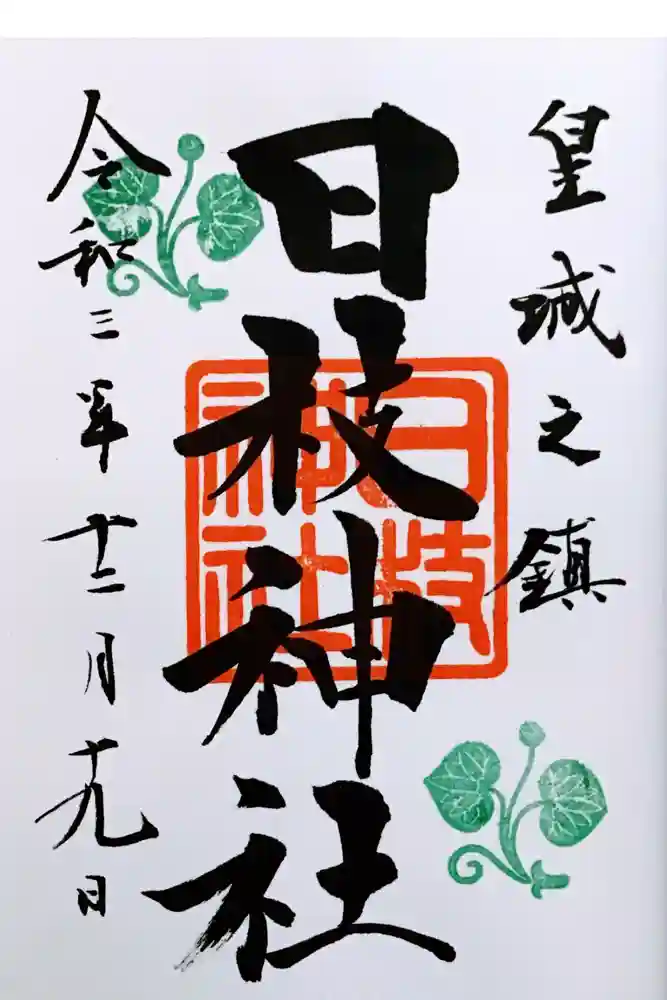 皇城之鎮
日枝神社
日枝
神社
令和三年十二月十九日